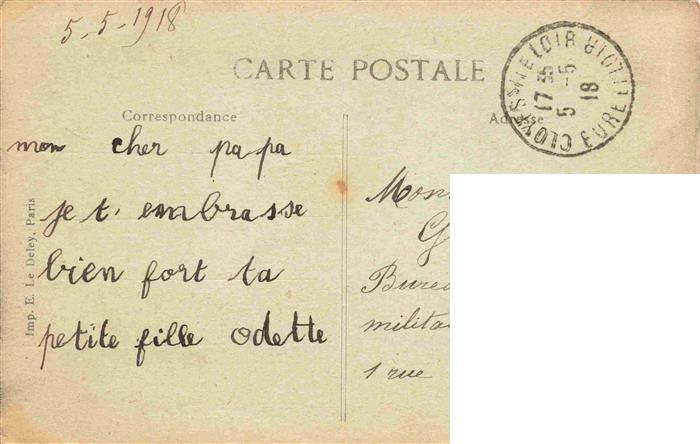 5-5-1918
CARTE POSTALE
Correspondance
Adresse
mon cher papa
je t'embrasse
bien fort ta
petite fille odette
Imp. E. Le Deley, Paris
CLOYES S/LE LOIR EURE ET LOIR
17 35
5 - 5
18
milita
1 rue